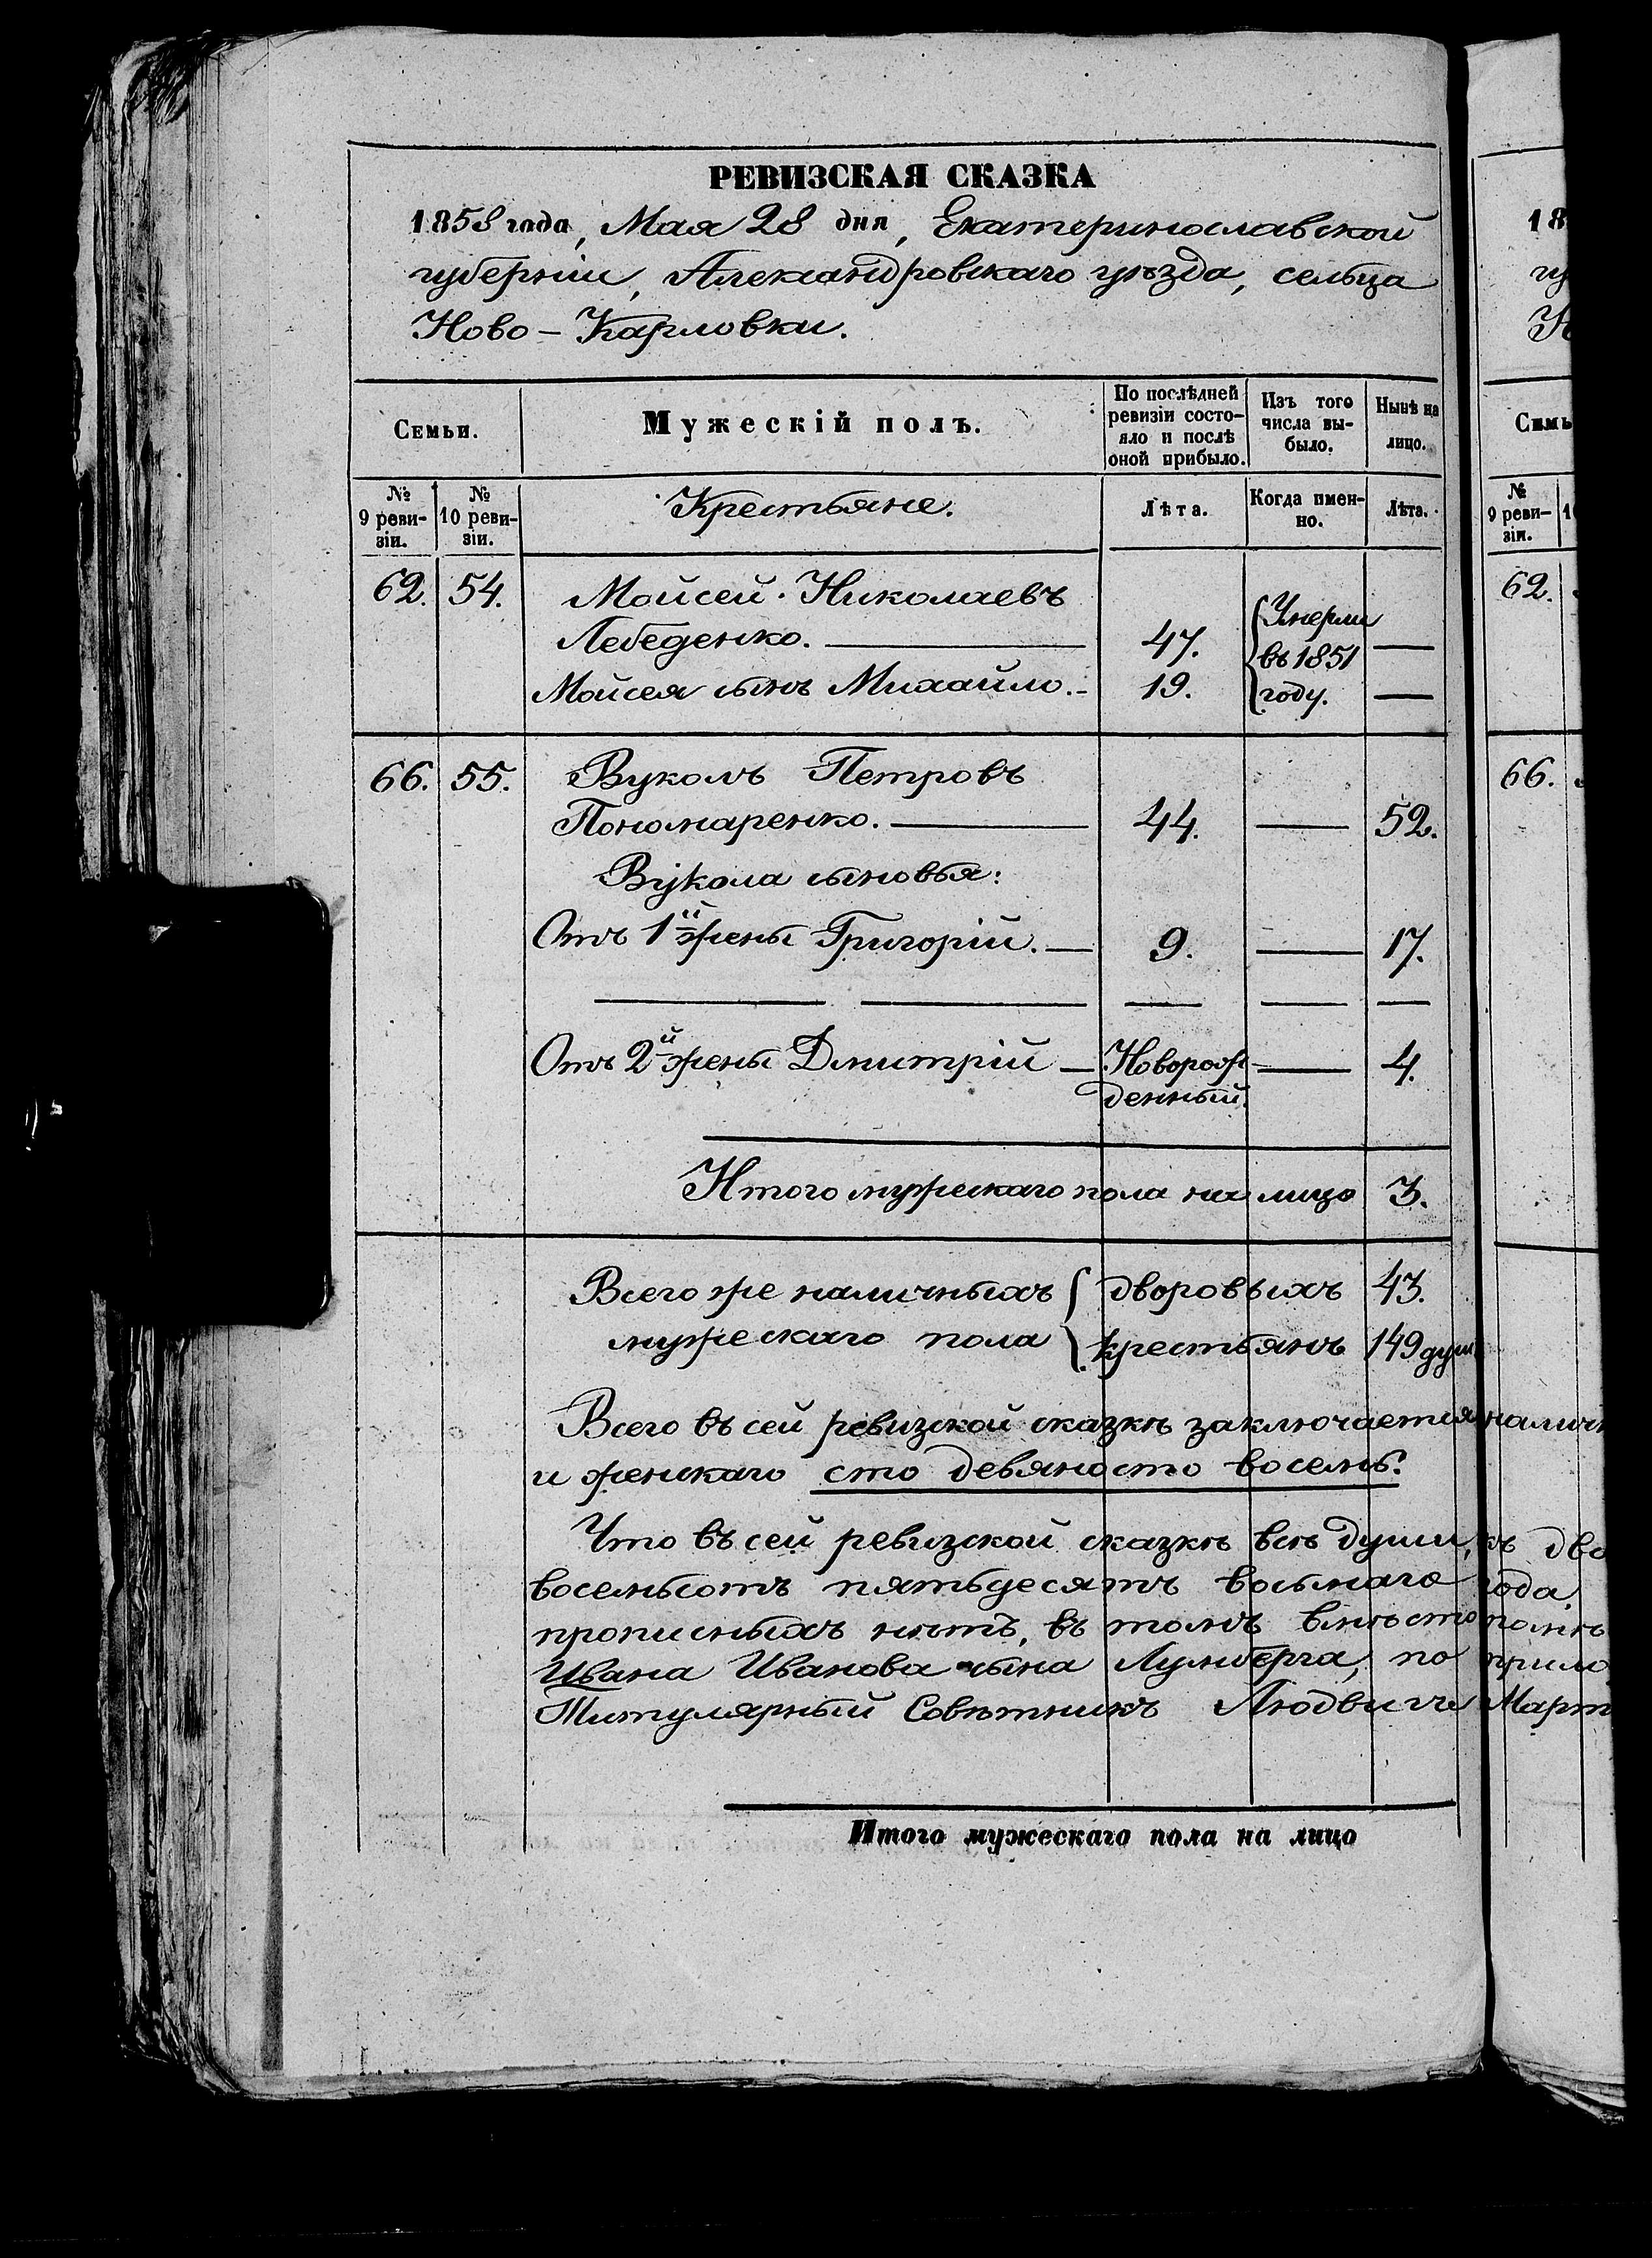 РЕВИЗСКАЯ СКАЗКА
1858 года, Мая 28 дня, Екатеринославской
губерніи, Александровскаго уѣзда, сельца
Ново-Карловки.
Семьи.
Мужескій полъ.
По послѣдней
ревизіи состо-
яло и послѣ
оной прибыло.
Изъ того
числа вы-
было.
Нынѣ на
лицо.
№
9 реви-
зіи.
№
10 реви-
зіи.
Крестьяне.
Лѣта.
Когда имен-
но.
Лѣта.
62. 54. Мойсей Николаевъ
Лебеденко. — 47. Умерли —
въ 1851
Мойсея сынъ Михайло. - 19. году. —
66. 55. Вуколъ Петровъ
Пономаренко. — 44. — 52.
Вукола сыновья:
Отъ 1й жены Григорій. — 9. — 17.
— — — — —
Отъ 2й жены Дмитрій — Новорож- — 4.
денный.
Итого мужескаго пола на лицо 3.
Всего же наличныхъ { дворовыхъ 43.
мужескаго пола { крестьянъ 149 душ
Всего въ сей ревизской сказкѣ заключается налич
и женскаго сто девяносто восемь.
Что въ сей ревизской сказкѣ всѣ души, къ дво
восемьсотъ пятьдесятъ восьмаго года,
прописныхъ нѣтъ, въ томъ вмѣсто помѣ
Ивана Иванова сына по прило
Титулярный Совѣтникъ Людвигъ Март
Итого мужескаго пола на лицо
18
гу
Н
Семь
№
9 реви-
зіи.
1
62.
66.